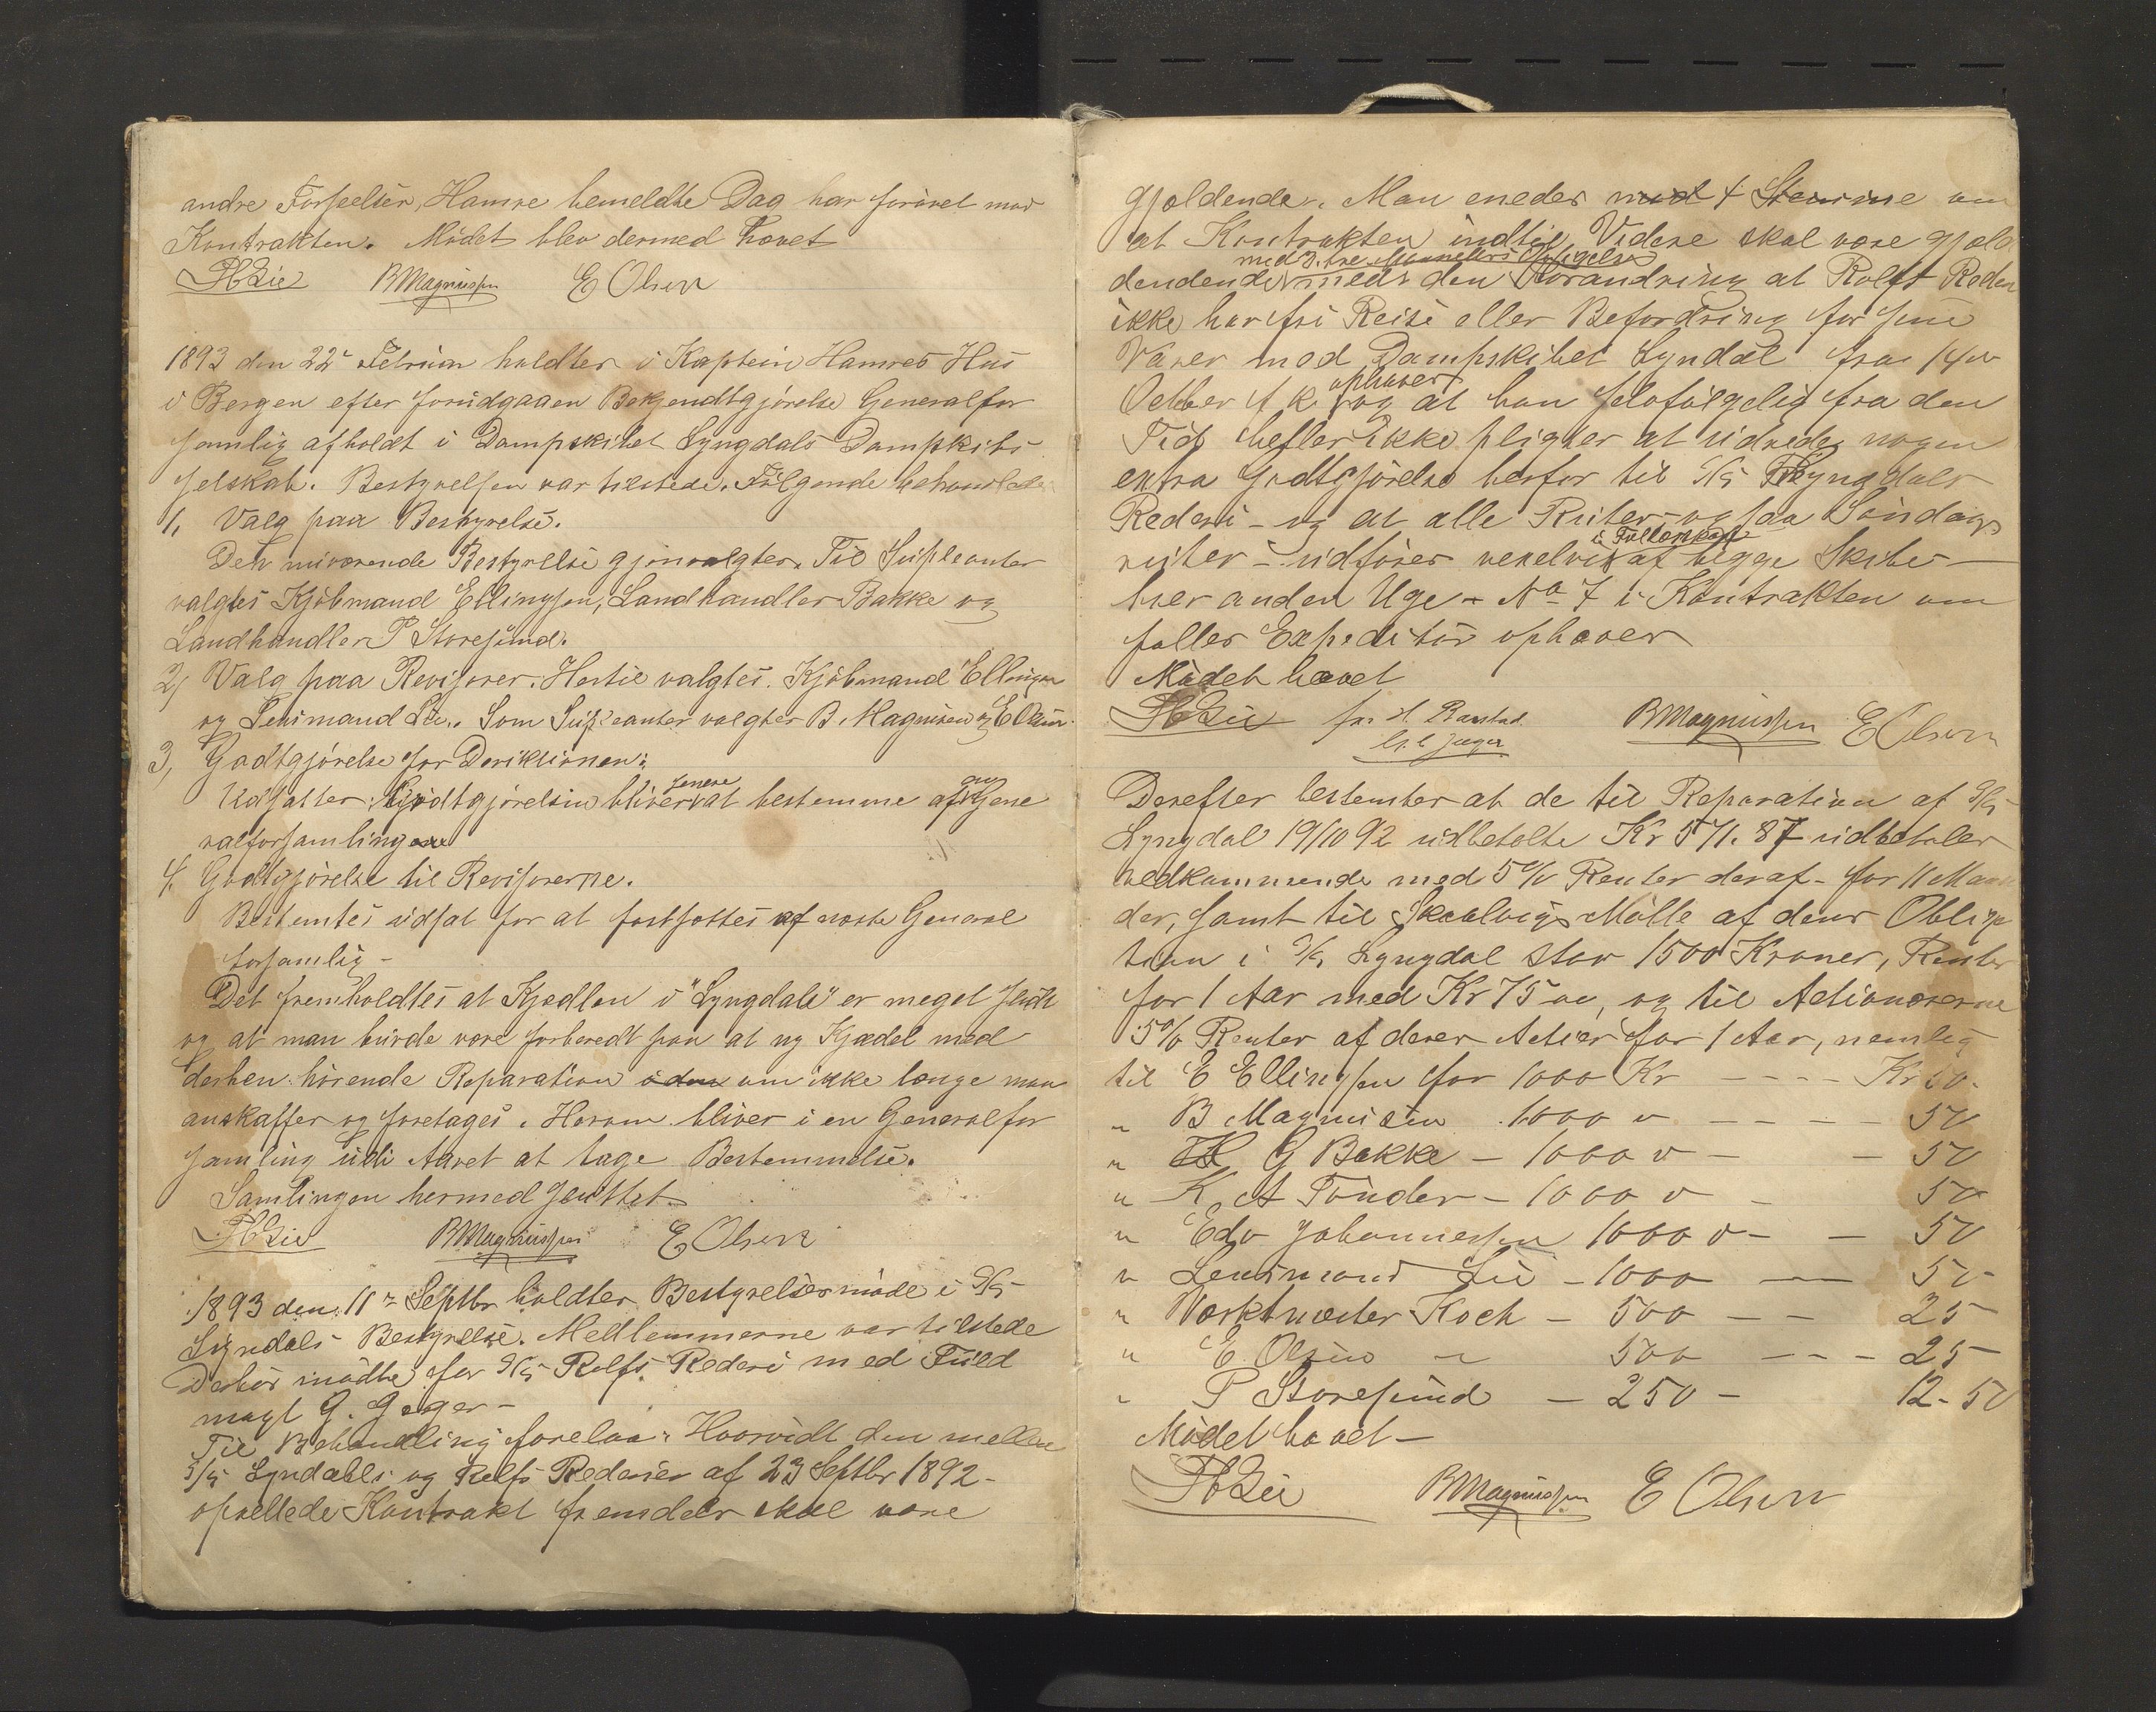 andre Forseelser, Hamre bemeldte Dag har forövet mod
Kontrakten. Mödet blev dermed hævet
PLie BMagnussen E Olsen
1893 den 22 Februar holdtes i Kaptein Hamres Hus
i Bergen efter forudgaaen Bekjendtgjörelse Generalfor
samlig afholdt i Dampskibet Lyngdals Dampskibs
selskab. Bestyrelsen var tilstede. Fölgende behandledes
1, Valg paa Bestyrelse.
Den nuværende Bestyrelse gjenvalgtes. Til Supleanter
valgtes Kjöbmand Ellingsen, Landhandler Bakke og
Landhandler P Storesund.
2, Valg paa Revisorer. Hertil valgtes Kjöbmand Ellingsen
og Lensmand Lie. Som Supleanter valgtes B. Magnusen og E Olsen.
3, Godtgjörelse for Deriktionen:
Udsattes. Godtgjörelsen bliver senere at bestemme af ny Gene
ralforsamling
4. Godtgjörelse til Revisorerne.
Bestemtes udsat for at fastsættes af næste General
forsamlig -
Det fremholdtes at Kjedlen i "Lyngdal" er meget slidt
og at man burde være forberedt paa at ny Kjædel med
derhen hörende Reparation om ikke længe maa
anskaffes og foretages. Herom bliver i en Generalfor
samling udi Aaret at tage Bestemmelse.
Samlingen hermed sluttet
PLie BMagnussen E Olsen
1893 den 11 Septbr holdtes Bestyrelsesmöde i D/S
Lyndals Bestyrelse. Medlemmerne var tilstede
Desuden mödte for D/S Rolfs Rederi med Fuld
magt G. Jæger -
Til Behandling forelaa: Hvorvidt den mellem
D/S Lyndahls og Rolfs Rederier af 23 Septbr 1892 -
oprettede Kontrakt fremdeles skal være
gjældende. Man enedes med 4 Stemme om
at Kontrakten indtil Videre skal være gjæl
med 3, tre Maaneders Opsigelse
dendende med den Forandring at Rolfs Rederi
ikke har fri Reise eller Befordring for sine
Varer med Dampskibet Lyndal fra 14de
Octber d. k. ophæver og at han selvfölgelig fra den
Tid heller ikke pligter at udrede nogen
extra Godtgjörelse herfor til D/S Lyngdals
Rederi - og at alle Ruter - ogsaa Söndags
ruter - udföres vexelvis i Fællesskab af begge Skibe -
hver anden Uge - No 7 i Kontrakten om
fælles Expeditör ophæves
Mödet hævet
PLie BMagnussen E Olsen
Derefter bestemtes at de til Reparation af D/S
Lyngdal 19/10 92 udbetalte Kr 571.87 udbetales
vedkommende med 5% Renter deraf - for 11 Maane
der, samt til Skaalvigs Mölle af dens Obliga
tion i D/S Lyngdal stor 1500 Kroner, Renter
for 1 Aar med Kr 75 oo, og til Actionærerne
5% Renter af deres Actier for 1 Aar, nemlig
til E Ellingsen for 1000 Kr - - - - Kr 50.
" B Magnusen 1000 " - - - - 50
" G Bakke - 1000 " - - 50
" K A Tönder - 1000 " - 50
" Edv Johannessen 1000 " - - 50
" Lensmand Lie - 1000 - 50
" Værktmester Koch - 500 - - 25
" E Olsen " 500 - - - 25
" P Storesund - 250 - 12.50
Mödet hævet -
PLie BMagnussen E Olsen